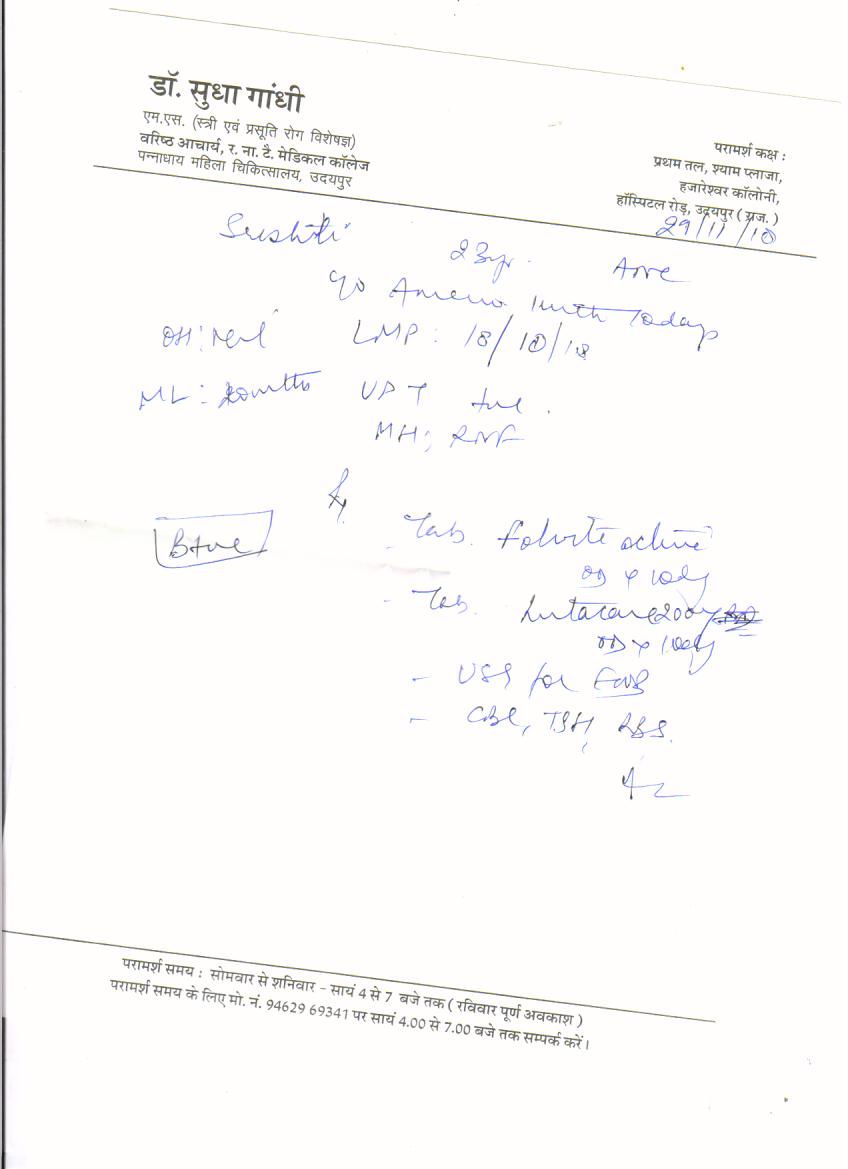 डॉ. सुधा गांधी
एम.एस. (स्त्री एवं प्रसूति रोग विशेषज्ञ)
वरिष्ठ आचार्य, र. ना. टै. मेडिकल कॉलेज
पन्नाधाय महिला चिकित्सालय, उदयपुर
परामर्श कक्ष :
प्रथम तल, श्याम प्लाजा,
हजारेश्वर कॉलोनी,
हॉस्पिटल रोड़, उदयपुर ( राज. )
29/11/18
Srishti 23yr.
1 mth 10 days
OH: LMP: 18/10/18
ML: UPT +ve.
MH:
B+ve
Tab. Folvite active
OD x 10 dy
- Tab. 200
OD x 10 dy
- USG for
- CBC, TSH, RBS.
परामर्श समय : सोमवार से शनिवार - सायं 4 से 7 बजे तक ( रविवार पूर्ण अवकाश )
परामर्श समय के लिए मो. नं. 94629 69341 पर सायं 4.00 से 7.00 बजे तक सम्पर्क करें।